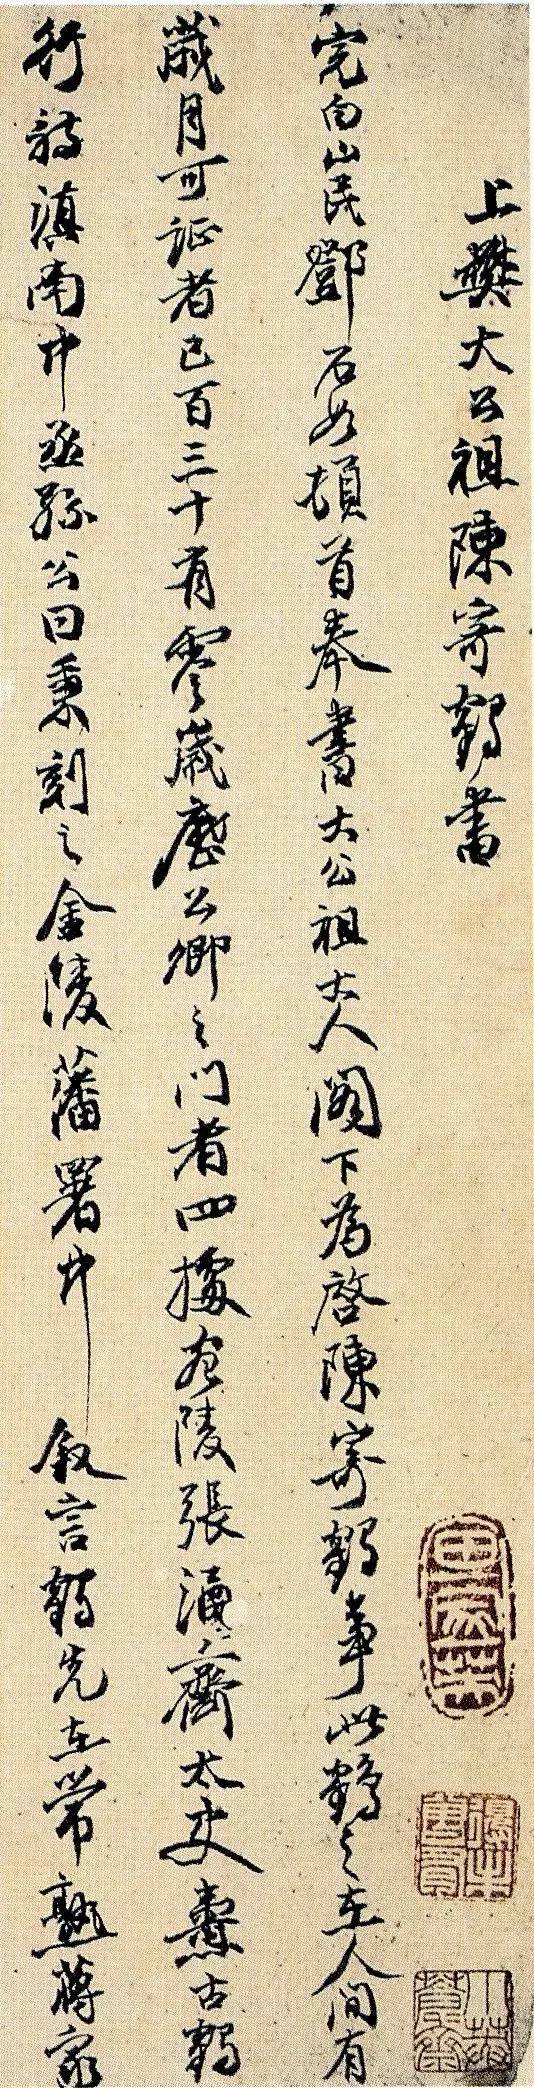 上樊大公祖陳寄鶴書
完白山民鄧石如頓首奉書大公祖大人閣下為啓陳寄鶴事此鶴之在人間有
歲月可証者已百三十有零歲歷公卿之門者四據宛陵張涵齋太史壽古鶴
行詩滇南中丞孫公曰秉刻之金陵藩署中叙言鶴先在常熟蔣家